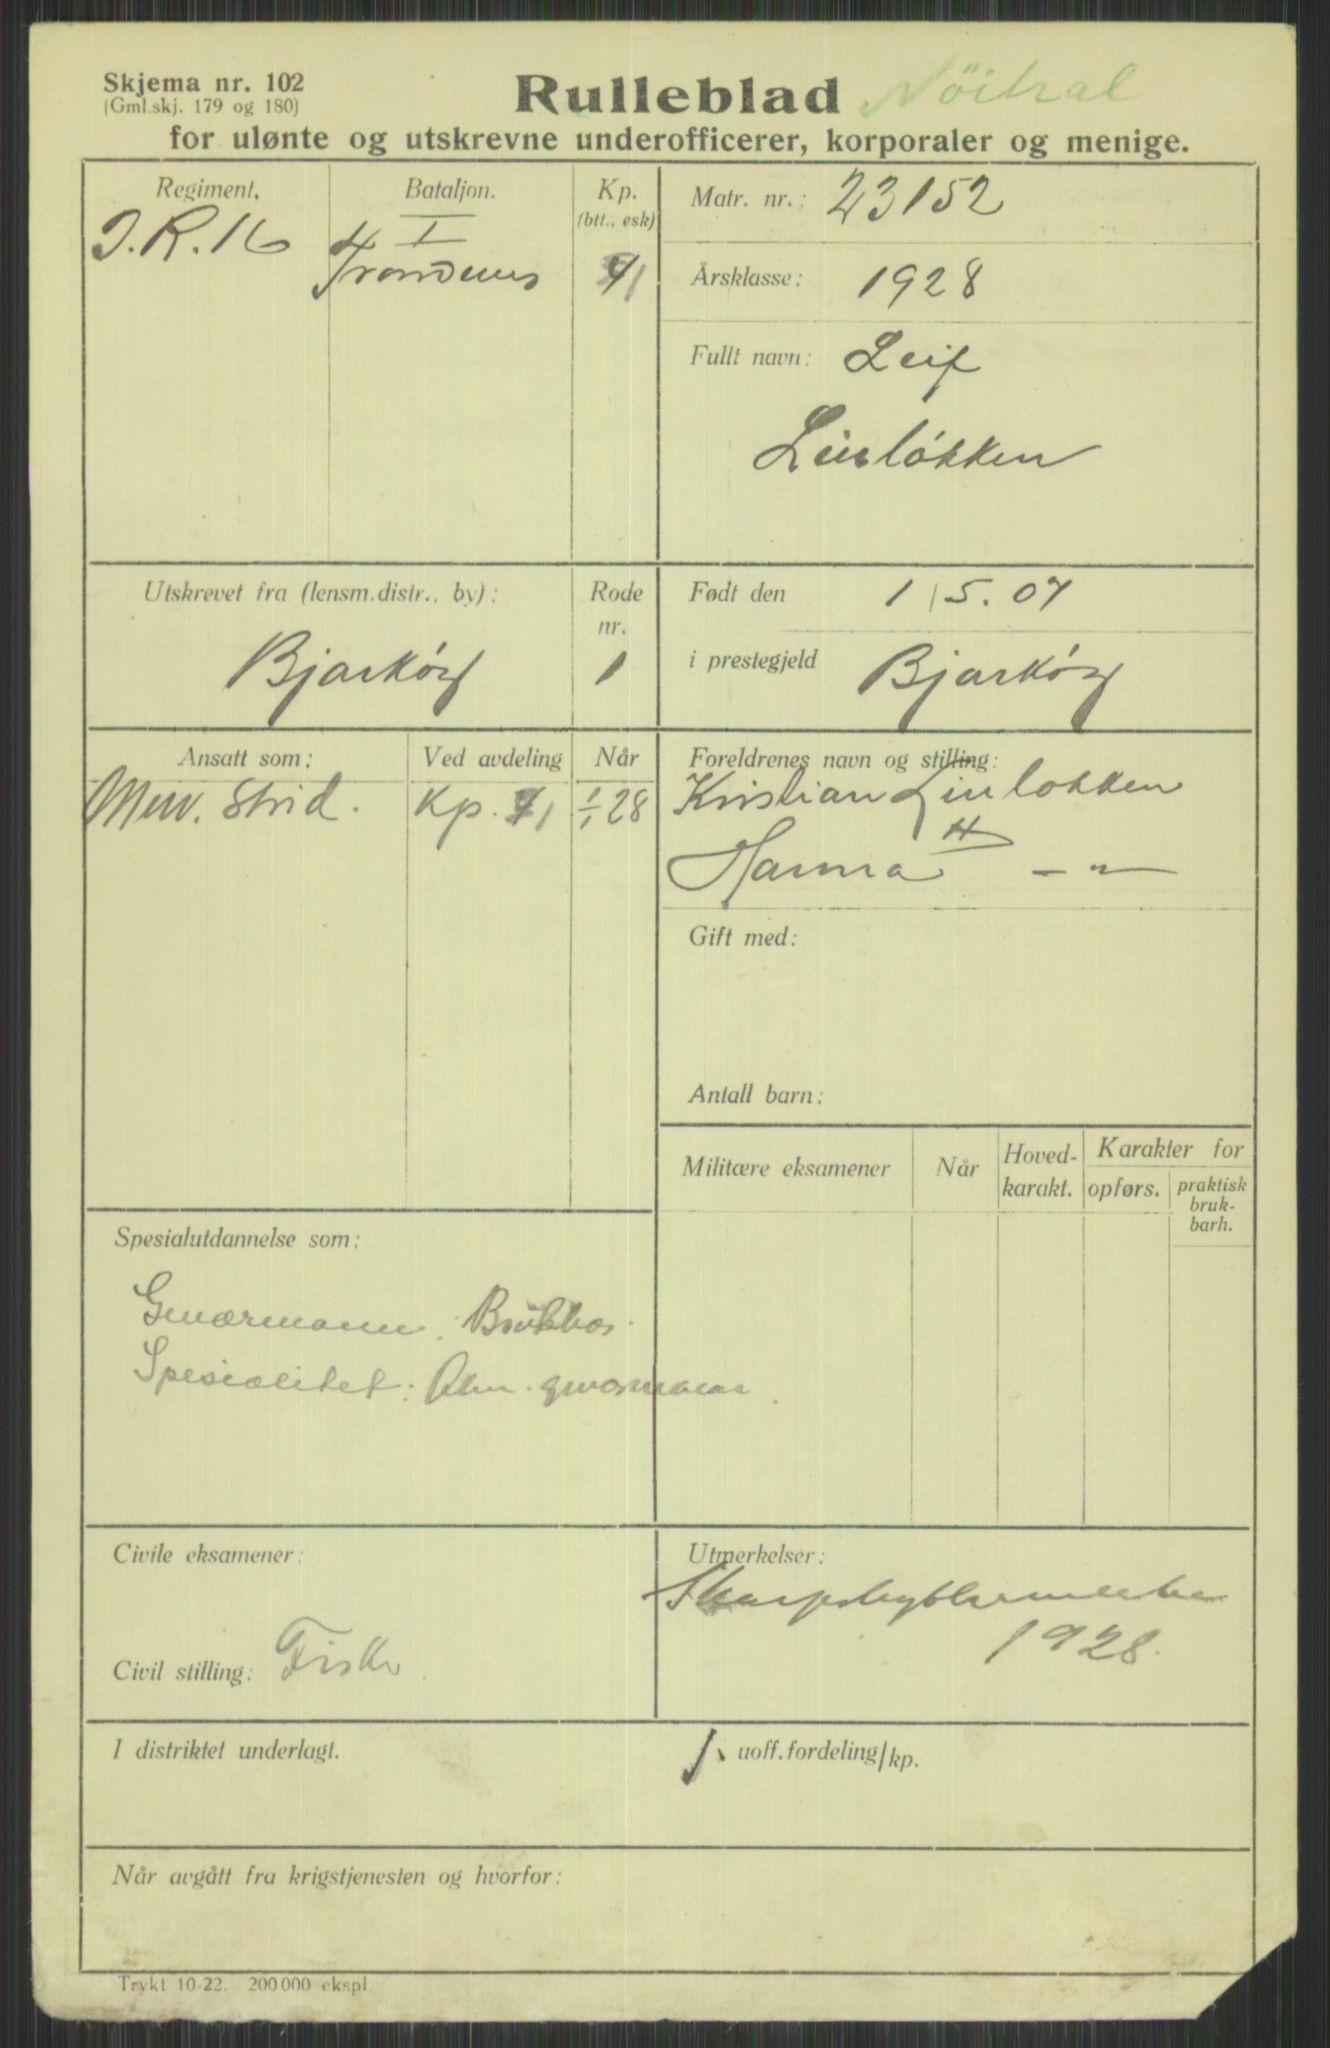 Skjema nr. 102
(Gml.skj. 179 og 180)
Rulleblad Nöitral
for ulønte og utskrevne underofficerer, korporaler og menige.
Regiment. Bataljon. Kp. (btt., esk)
I.R. 16 I
Trondenes 1
Matr. nr.: 23152
Årsklasse: 1928
Fullt navn: Leif
Linløkken
Utskrevet fra (lensm.distr., by): Rode nr.
Bjarkøy 1
Født den 1/5.07
i prestegjeld Bjarkøy
Ansatt som: Ved avdeling Når
Men. Strid. Kp. 1 1/1 28
Foreldrenes navn og stilling:
Kristian Linløkken
Hanna H — " —
Gift med:
Antall barn:
Militære eksamener Når Hoved-karakt. Karakter for
opførs. praktisk bruk-barh.
Spesialutdannelse som:
Geværmann. Brukbar.
Spesialitet: Alm. geværmann.
Civile eksamener:
Civil stilling: Fisker
Utmerkelser:
Skarpskyttermerke
1928.
I distriktet underlagt. 1. uoff.fordeling/kp.
Når avgått fra krigstjenesten og hvorfor:
Trykt 10-22. 200 000 ekspl.